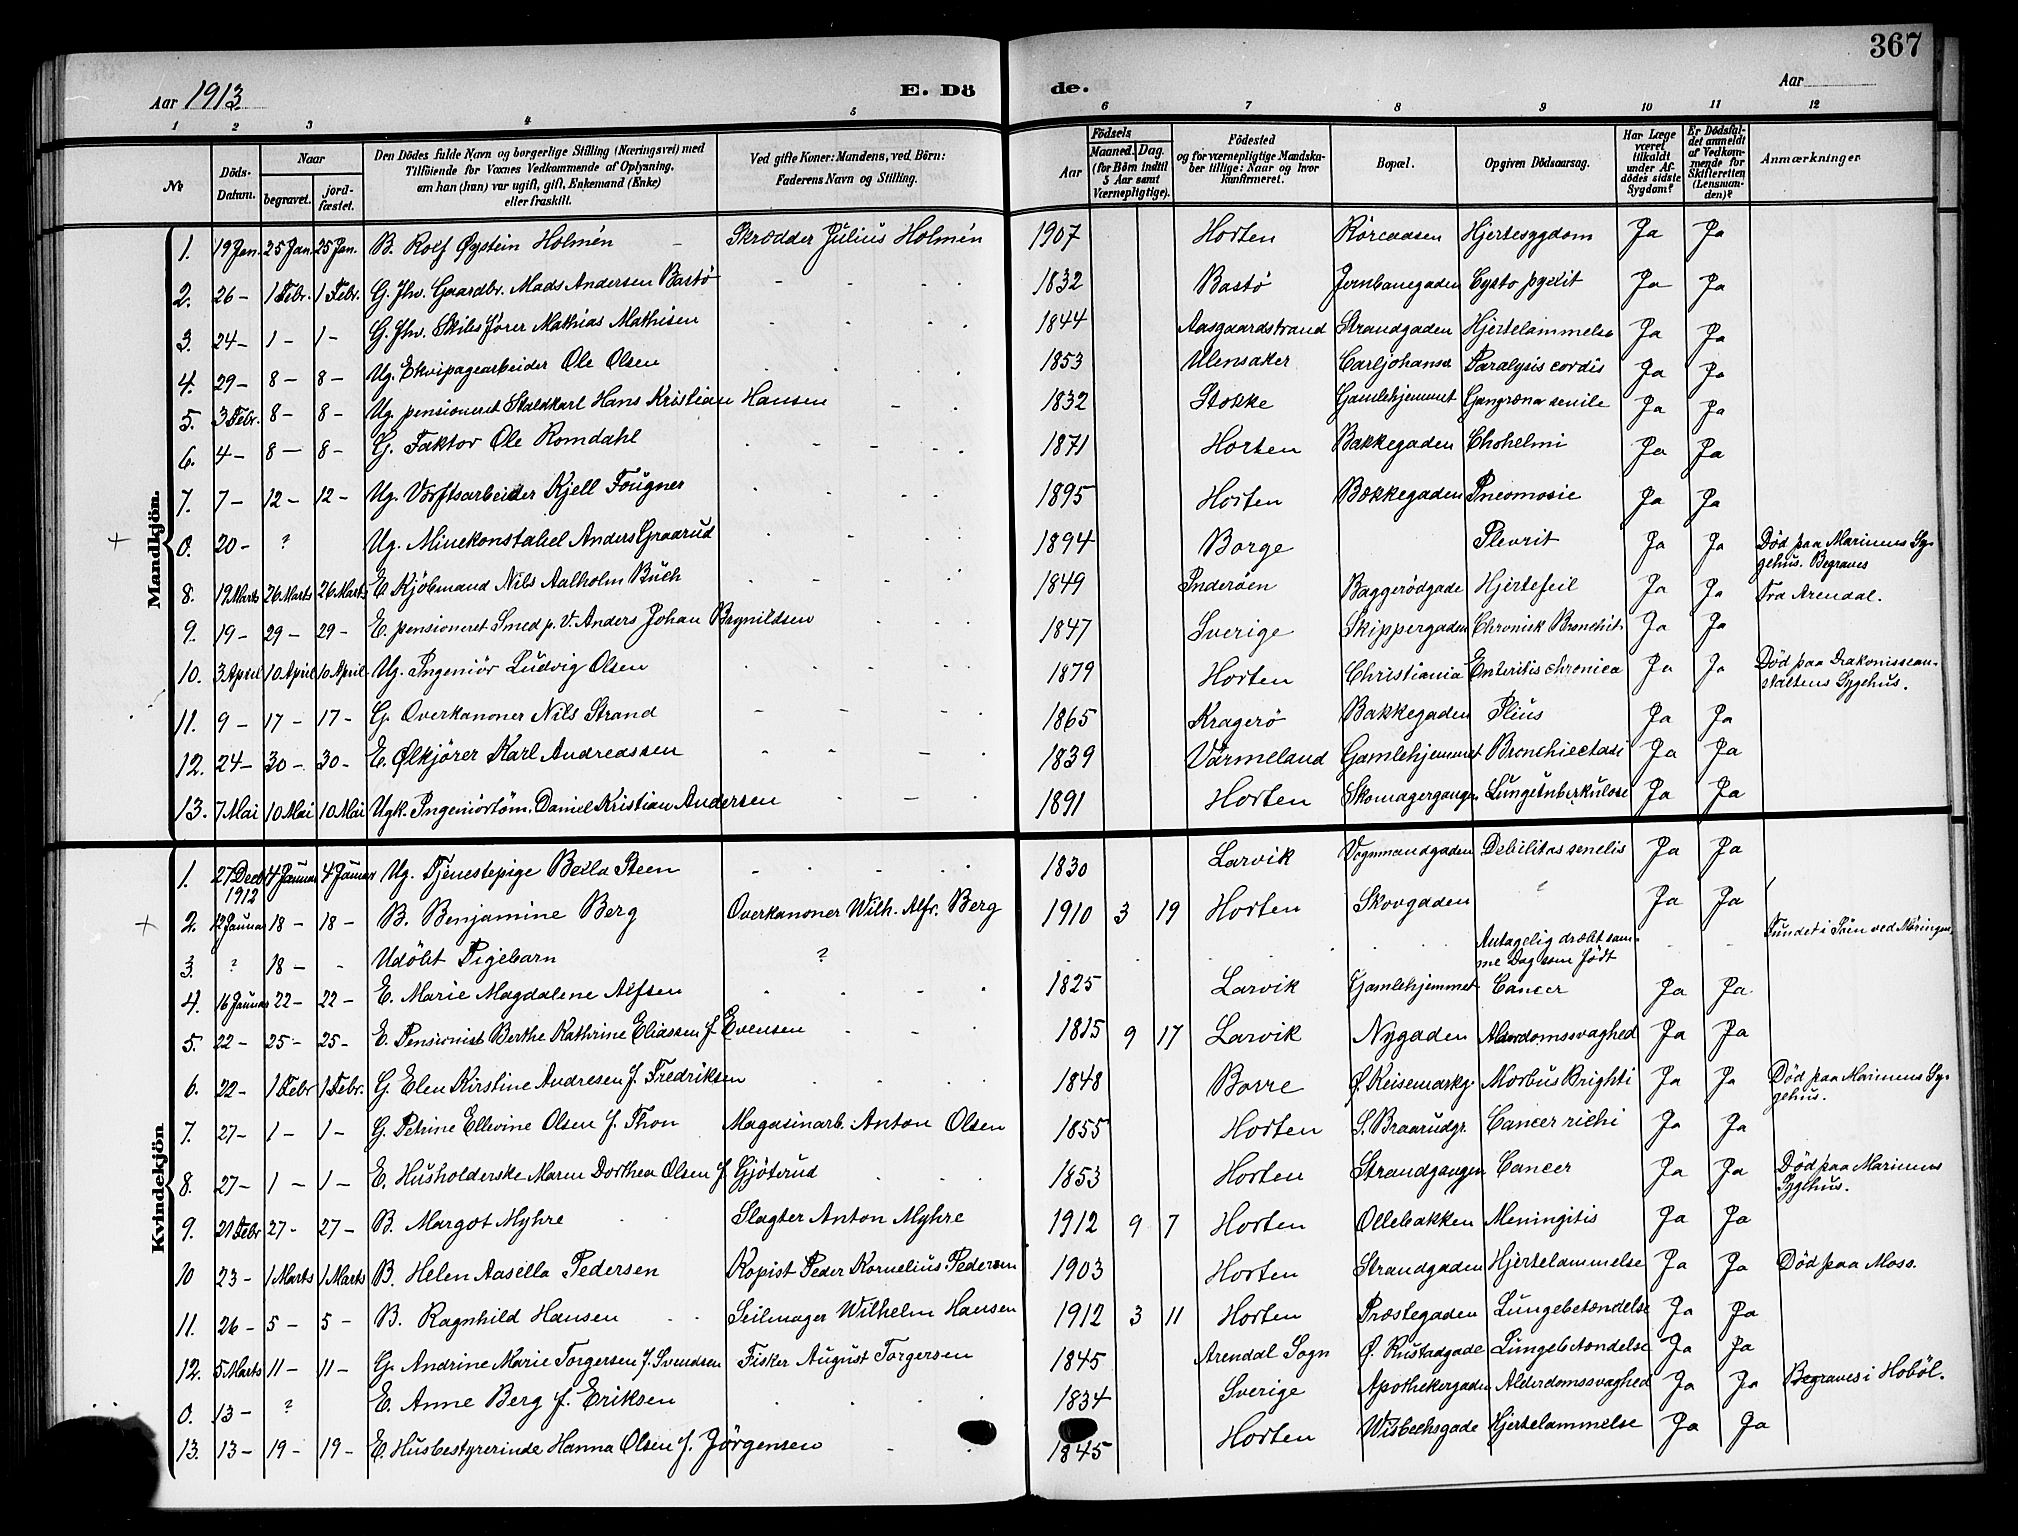 367
Aar 1913
E. Dö
de.
Aar
1 2 3 4 5 6 7 8 9 10 11 12
No
Döds-Datum.
Naar
begravet.
jord-fæstet.
Den Dödes fulde Navn og borgerlige Stilling (Næringsvei) med
Tilföiende for Voxnes Vedkommende af Oplysning,
om han (hun) var ugift, gift, Enkemand (Enke)
eller fraskilt.
Ved gifte Koner: Mandens, ved Börn:
Faderens Navn og Stilling.
Födsels
Aar
Maaned. Dag.
(for Börn indtil
5 Aar samt
Værnepligtige).
Födested
og for værnepligtige Mandska-
ber tillige: Naar og hvor
konfirmeret.
Bopæl.
Opgiven Dödsaarsag.
Har Læge
været
tilkaldt
under Af-
dödes sidste
Sygdom?
Er Dödsfal-
det anmeldt
af Vedkom-
mende for
Skifteretten
(Lensman-
den)?
Anmærkninger
Mandkjön.
1. 19 Jan. 25 Jan. 25 Jan. B. Rolf Øystein Holmén - Skrædder Julius Holmén 1907 Horten Rørcaasen Hjertesygdom Ja Ja
2. 26 - 1 Febr. 1 Febr. G. Fhv. Gaardbr. Mads Andersen Bastø 1832 Bastø Jernbanegaden Cysto pyelit Ja Ja
3. 24 - 1 - 1 - G. Fhv. Skibsfører Mathias Mathisen 1844 Aasgaardstrand Strandgaden Hjertelammelse Ja Ja
4. 29 - 8 - 8 - Ug. Ekvipagearbeider Ole Olsen 1853 Ulensaker Carljohansv Paralysis cordis Ja Ja
5. 3 Febr. 8 - 8 - Ug. pensioneret Staldkarl Hans Kristian Hansen 1832 Stokke Gamlehjemmet Gangræna senile Ja Ja
6. 4 - 8 - 8 - G. Faktor Ole Romdahl 1871 Horten Bakkegaden Ja Ja
7. 7 - 12 - 12 - Ug. Værftsarbeider Kjell Fougner 1895 Horten Bakkegaden Pneomosie Ja Ja
0. 20 - ? Ug. Minekonstabel Anders Graarud 1894 Borge Plevrit Ja Ja Død paa Marinens Sy-
gehus. Begraves
8. 19 Marts 26 Marts 26 Marts E. Kjöbmand Nils Aalholm Buch 1849 Inderøen Baggerødgade Hjertefeil Ja Ja Fra Arendal.
9. 19 - 29 - 29 - E. pensioneret Smed p. V. Anders Johan Brynildsen 1847 Sverige Skippergaden Chronisk Bronchit Ja Ja
10. 3 April 10 April 10 April Ug. Ingeniör Ludvig Olsen 1879 Horten Christiania Enteritis chronica Ja Ja Død paa Diakonissean-
staltens Sygehus.
11. 9 - 17 - 17 - G. Overkanoner Nils Strand 1865 Kragerø Bakkegaden Ja Ja
12. 24 - 30 - 30 - E. Ølkjörer Karl Andreassen 1839 Värmeland Gamlehjemmet Bronchiectasi Ja Ja
13. 7 Mai 10 Mai 10 Mai Ugk. Ingeniörtöm. Daniel Kristian Andersen 1891 Horten Skomagergangen Lungetuberkulose Ja Ja
Kvindekjön
1. 27 Decbr 1912 4 Januar 4 Januar Ug. Tjenestepige Bella Steen 1830 Larvik Vognmandgaden Debilitas senelis Ja Ja
2. 12 Januar 18 - 18 - B. Benjamine Berg Overkanoner Wilh. Alfr. Berg 1910 3 19 Horten Skovgaden ? Ja Ja
3. ? 18 - - Udöbt Pigebarn ? Antagelig dræbt sam-
me Dag som født Fundet i Söen ved Møringen
4. 16 Januar 22 - 22 - E. Marie Magdalene Alfsen 1825 Larvik Gamlehjemmet Cancer Ja Ja
5. 22 - 25 - 25 - E. Pensionist Berthe Kathrine Eliassen f. Evensen 1815 9 17 Larvik Nygaden Alderdomssvaghed Ja Ja
6. 22 - 1 Febr 1 Febr. G. Elen Kirstine Andresen f. Fredriksen 1848 Borre Ø. Keisemarkg. Morbus Brighti Ja Ja Död paa Marinens Sy-
gehus.
7. 27 - 1 - 1 - G. Petrine Ellevine Olsen f. Thon Magasinarb. Anton Olsen 1855 Horten S. Braarudgr. Cancer Ja Ja
8. 27 - 1 - 1 - E. Husholderske Maren Dorthea Olsen f. Gjöterud 1853 Horten Strandgangen Cancer Ja Ja Död paa Marinens
Sygehus.
9. 21 Febr 27 - 27 - B. Margot Myhre Slagter Anton Myhre 1912 9 7 Horten Ollebakken Meningitis Ja Ja
10 23 - 1 Marts 1 Marts B. Helen Aasella Pedersen Kopist Peder Kornelius Pedersen 1903 Horten Strandgaden Hjertelammelse Ja Ja Död paa Moss.
11. 26 - 5 - 5 - B. Ragnhild Hansen Seilmager Wilhelm Hansen 1912 3 11 Horten Præstegaden Lungebetændelse Ja Ja
12. 5 Marts 11 - 11 - G. Andrine Marie Torgersen f. Svendsen Fisker August Torgersen 1845 Arendal Sogn Ø. Rustadgade Lungebetændelse Ja Ja
0. 13 - ? E. Anne Berg f. Eriksen 1834 Sverige Apothekergaden Alderdomssvaghed Ja Ja Begraves i Hobøl.
13. 13 - 19 - 19 - E. Husbestyrerinde Hanna Olsen f. Jörgensen 1845 Horten Wisbechsgade Hjertelammelse Ja Ja